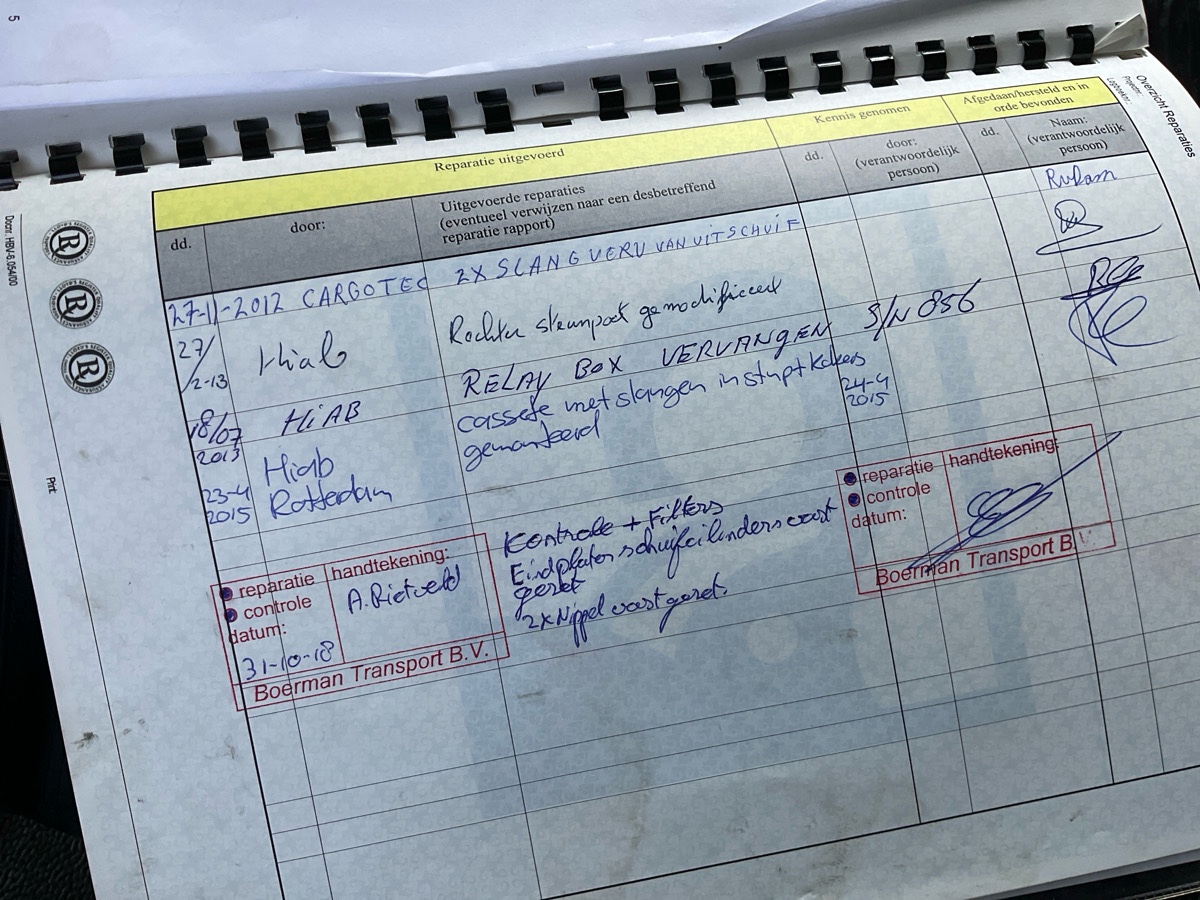 5
Overzicht Reparaties
Projectnr.
Logboeknr.
Reparatie uitgevoerd
Kennis genomen
Afgedaan/hersteld en in
orde bevonden
dd.
door:
Uitgevoerde reparaties
(eventueel verwijzen naar een desbetreffend
reparatie rapport)
dd.
door:
(verantwoordelijk
persoon)
dd.
Naam:
(verantwoordelijk
persoon)
27-11-2012 CARGOTEC 2X SLANG VERV VAN UITSCHUIF
27/
2-13
Hiab
Rechter steunpoot gemodificeerd
18/07
2013
HIAB
RELAY BOX VERVANGEN S/N 856
23-4
2015
Hiab
Rotterdam
cassete met slangen in
gemonteerd
24-4
2015
reparatie
controle
datum:
31-10-18
handtekening:
A. Rietveld
Boerman Transport B.V.
Kontrole + Filters
Eindplaten schuifcilinders vast
gezet
2x Nippel vast gezet.
reparatie
controle
datum:
handtekening:
Boerman Transport B.V.
Docnr. HBV-6.054/00
Print